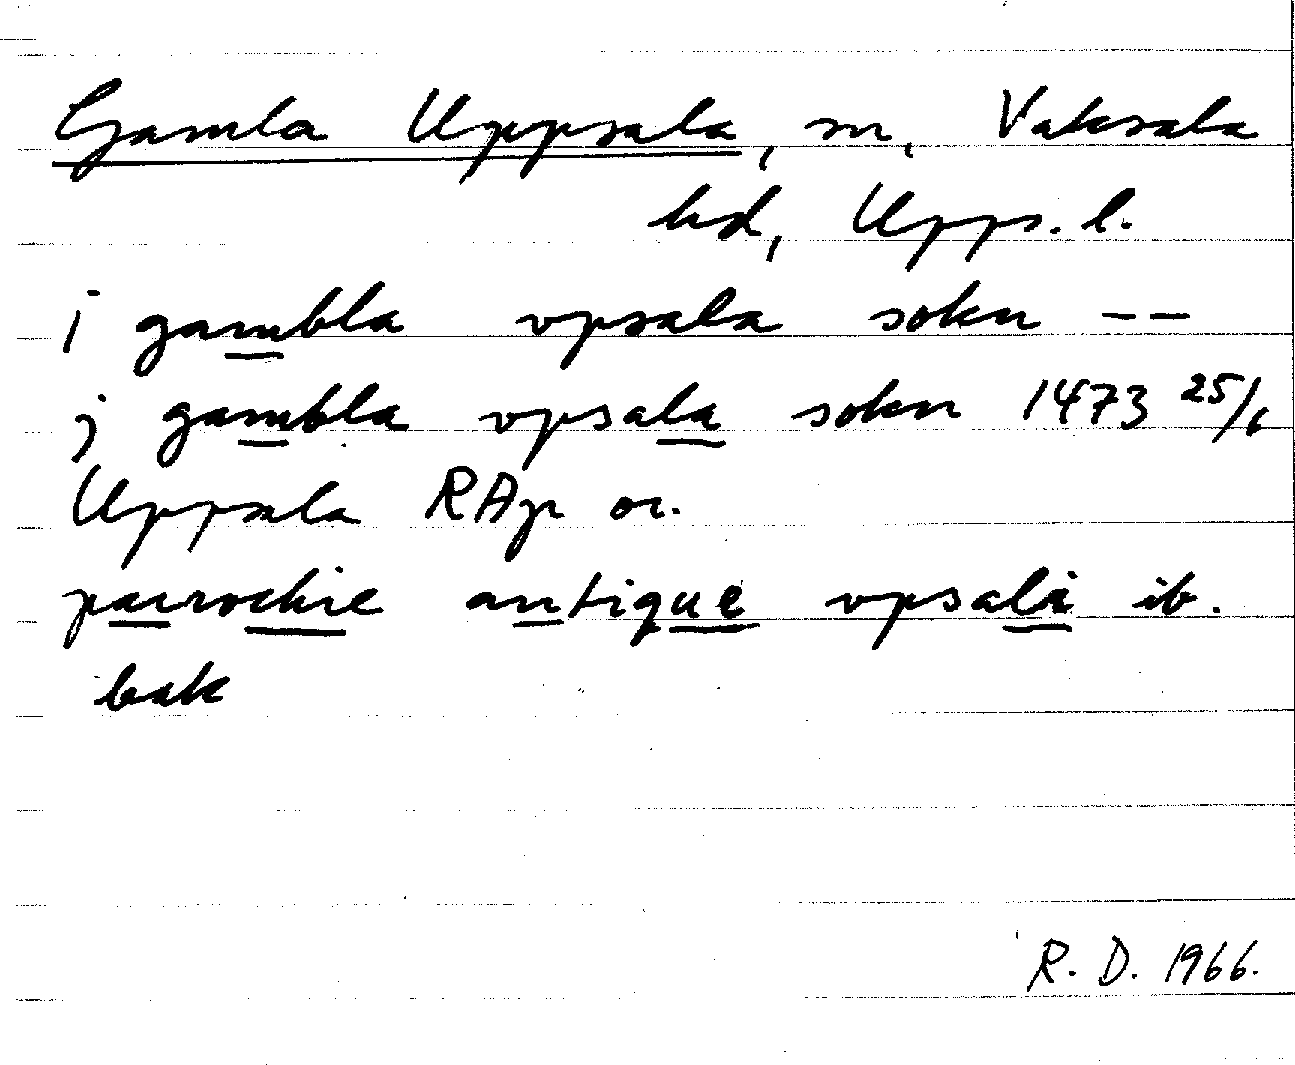 Gamla Uppsala, sn, Vaksala
hd, Upps. l.
i gambla vpsala sokn --
j gambla vpsala sokn 1473 25/6
Uppsala RAp or.
parrochie antique vpsali ib.
bak
R. D. 1966.